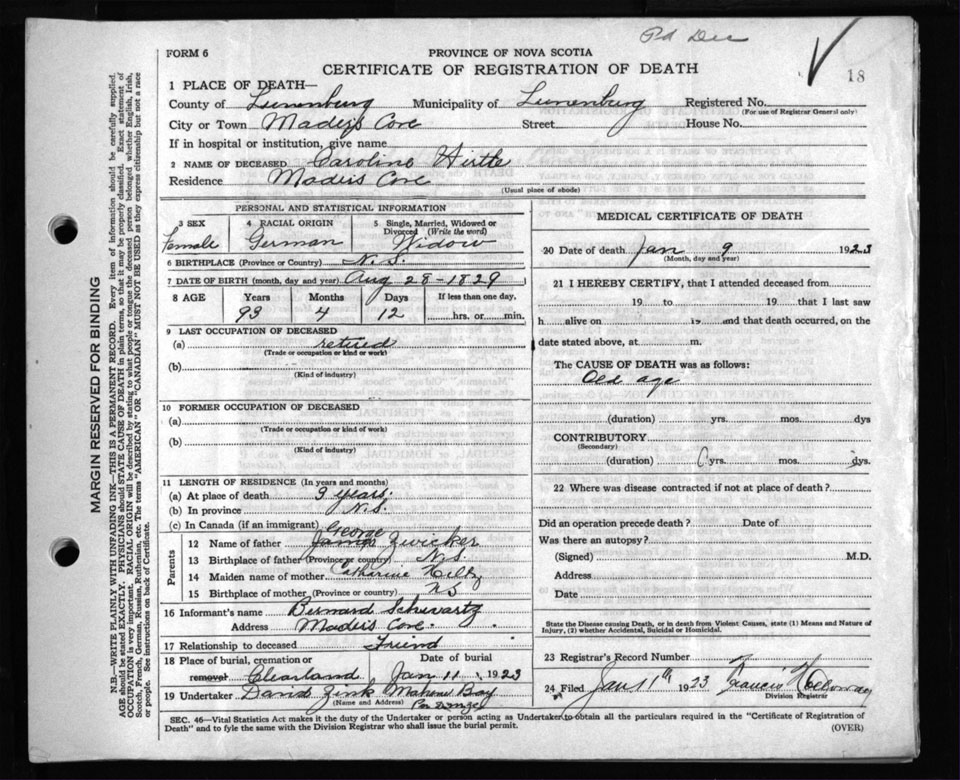 Pd Dec
18
FORM 6
PROVINCE OF NOVA SCOTIA
CERTIFICATE OF REGISTRATION OF DEATH
1 PLACE OF DEATH—
County of Lunenburg Municipality of Lunenburg Registered No.
(For use of Registrar General only)
City or Town Maders Cove Street House No.
If in hospital or institution, give name
2 NAME OF DECEASED Caroline Hirtle
Residence Maders Cove
(Usual place of abode)
PERSONAL AND STATISTICAL INFORMATION
3 SEX 4 RACIAL ORIGIN 5 Single, Married, Widowed or
Divorced (Write the word)
Female German Widow
6 BIRTHPLACE (Province or Country) N. S.
7 DATE OF BIRTH (month, day and year) Aug 28-1829
8 AGE Years Months Days If less than one day,
93 4 12 hrs. or min.
9 LAST OCCUPATION OF DECEASED
(a) retired
(Trade or occupation or kind or work)
(b)
(Kind of industry)
10 FORMER OCCUPATION OF DECEASED
(a)
(Trade or occupation or kind of work)
(b)
(Kind of industry)
11 LENGTH OF RESIDENCE (In years and months)
(a) At place of death 9 years.
(b) In province N.S.
(c) In Canada (if an immigrant)
Parents
George
12 Name of father James Zwicker
13 Birthplace of father (Province or country) N.S.
14 Maiden name of mother Catharine
15 Birthplace of mother (Province or country) NS
16 Informant's name Bernard Schwartz
Address Maders Cove.
17 Relationship to deceased Friend
18 Place of burial, cremation or Date of burial
removal Clearland Jan 11 1923
19 Undertaker David Zink Mahone Bay
(Name and Address) Per
MEDICAL CERTIFICATE OF DEATH
20 Date of death Jan 9 1923
(Month, day and year)
21 I HEREBY CERTIFY, that I attended deceased from
19 to 19 that I last saw
h alive on 19 and that death occurred, on the
date stated above, at m.
The CAUSE OF DEATH was as follows:
Old age
(duration) yrs. mos. dys
CONTRIBUTORY
(Secondary)
(duration) yrs. mos. dys.
22 Where was disease contracted if not at place of death?
Did an operation precede death? Date of
Was there an autopsy?
(Signed) M.D.
Address
Date
State the Disease causing Death, or in death from Violent Causes, state (1) Means and Nature of
Injury, (2) whether Accidental, Suicidal or Homicidal.
23 Registrar's Record Number
24 Filed Jan 11th 1923 Francis
Division Registrar
SEC. 46—Vital Statistics Act makes it the duty of the Undertaker or person acting as Undertaker to obtain all the particulars required in the "Certificate of Registration of
Death" and to fyle the same with the Division Registrar who shall issue the burial permit.
(OVER)
MARGIN RESERVED FOR BINDING
N.B.—WRITE PLAINLY WITH UNFADING INK—THIS IS A PERMANENT RECORD. Every item of information should be carefully supplied.
AGE should be stated EXACTLY. PHYSICIANS should STATE CAUSE OF DEATH in plain terms, so that it may be properly classified. Exact statement of
OCCUPATION is very important. RACIAL ORIGIN will be described by stating to what people or tongue the deceased person belonged whether English, Irish,
Scotch, French, German, Russian, Ruthenian, etc. The terms "AMERICAN" OR "CANADIAN" MUST NOT BE USED as they express citizenship but not a race
or people. See instructions on back of Certificate.